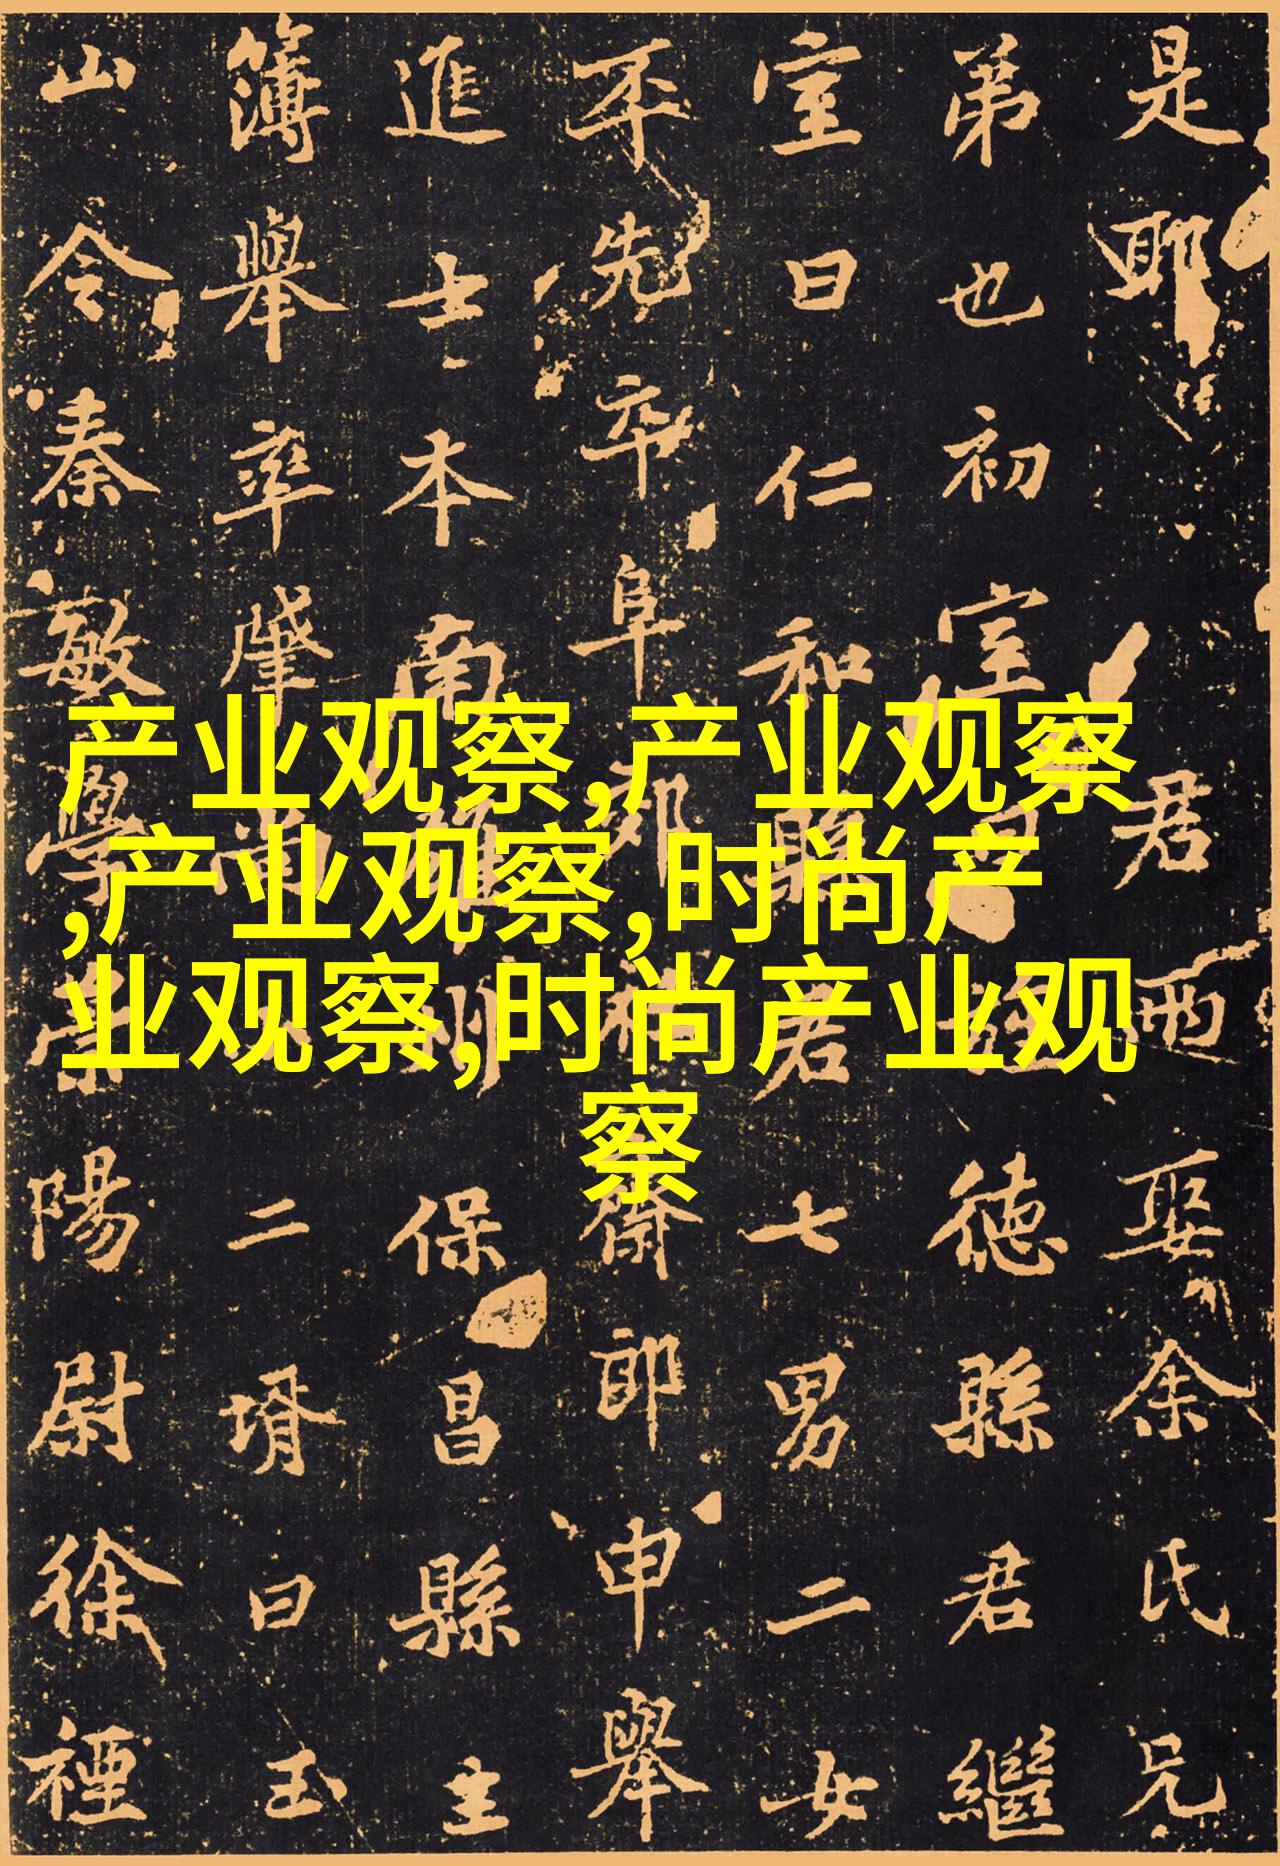 产业观察,产业观察
,产业观察,时尚产
业观察,时尚产业观
察
是耶君娶余氏兄
弟也初室德縣君繼
室曰仁和縣君七男二女
不先卒阜郊齋郎申舉
進士本南州保昌縣主
簿舉率肇尚二壻曰玉
山令秦敏學陽尉徐禋